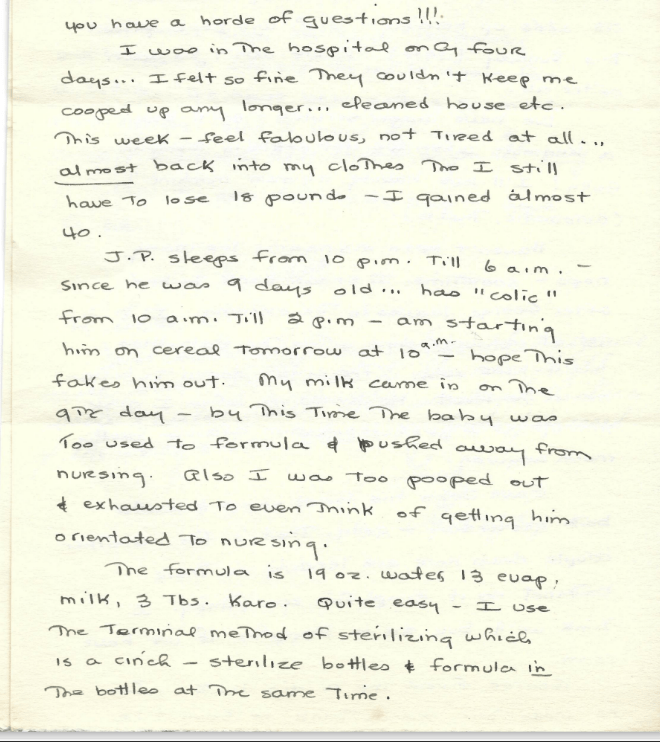 you have a horde of questions!!!
I was in The hospital only four
days... I felt so fine They couldn't keep me
cooped up any longer... cleaned house etc.
This week - feel fabulous, not Tired at all...
almost back into my clothes Tho I still
have To lose 18 pounds - I gained almost
40.
J.P. sleeps from 10 p.m. Till 6 a.m. -
since he was 9 days old... has "colic"
from 10 a.m. Till 2 p.m - am starting
him on cereal tomorrow at 10 a.m. - hope This
fakes him out. My milk came in on The
9Th day - by This Time The baby was
Too used to formula & pushed away from
nursing. Also I was Too pooped out
& exhausted To even Think of getting him
orientated To nursing.
The formula is 19 oz. water 13 evap.
milk, 3 Tbs. Karo. Quite easy - I use
The Terminal method of sterilizing which
is a cinch - sterilize bottles & formula in
The bottles at The same Time.